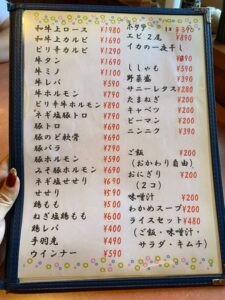 和牛上ロース ¥1980
和牛上カルビ ¥1290
ピリ辛カルビ ¥1290
牛タン ¥1690
牛ミノ ¥1100
牛レバ ¥590
牛ホルモン ¥790
ピリ辛牛ホルモン ¥890
ネギ塩豚トロ ¥790
豚トロ ¥690
豚のど軟骨 ¥690
豚バラ ¥790
豚ホルモン ¥590
みそ豚ホルモン ¥590
ネギ塩せせり ¥690
せせり ¥590
鶏もも ¥500
ねぎ塩鶏もも ¥600
鶏レバ ¥400
手羽先 ¥490
ウインナー ¥390
ホタテ ¥390
エビ2尾 ¥890
イカの一夜干し
ししゃも ¥590
野菜盛 ¥390
サニーレタス ¥280
たまねぎ ¥200
キャベツ ¥200
ピーマン ¥200
ニンニク ¥390
ご飯 ¥200
(おかわり自由)
おにぎり ¥200
(2コ)
味噌汁 ¥200
わかめスープ ¥200
ライスセット ¥480
(ご飯・味噌汁・
サラダ・キムチ)